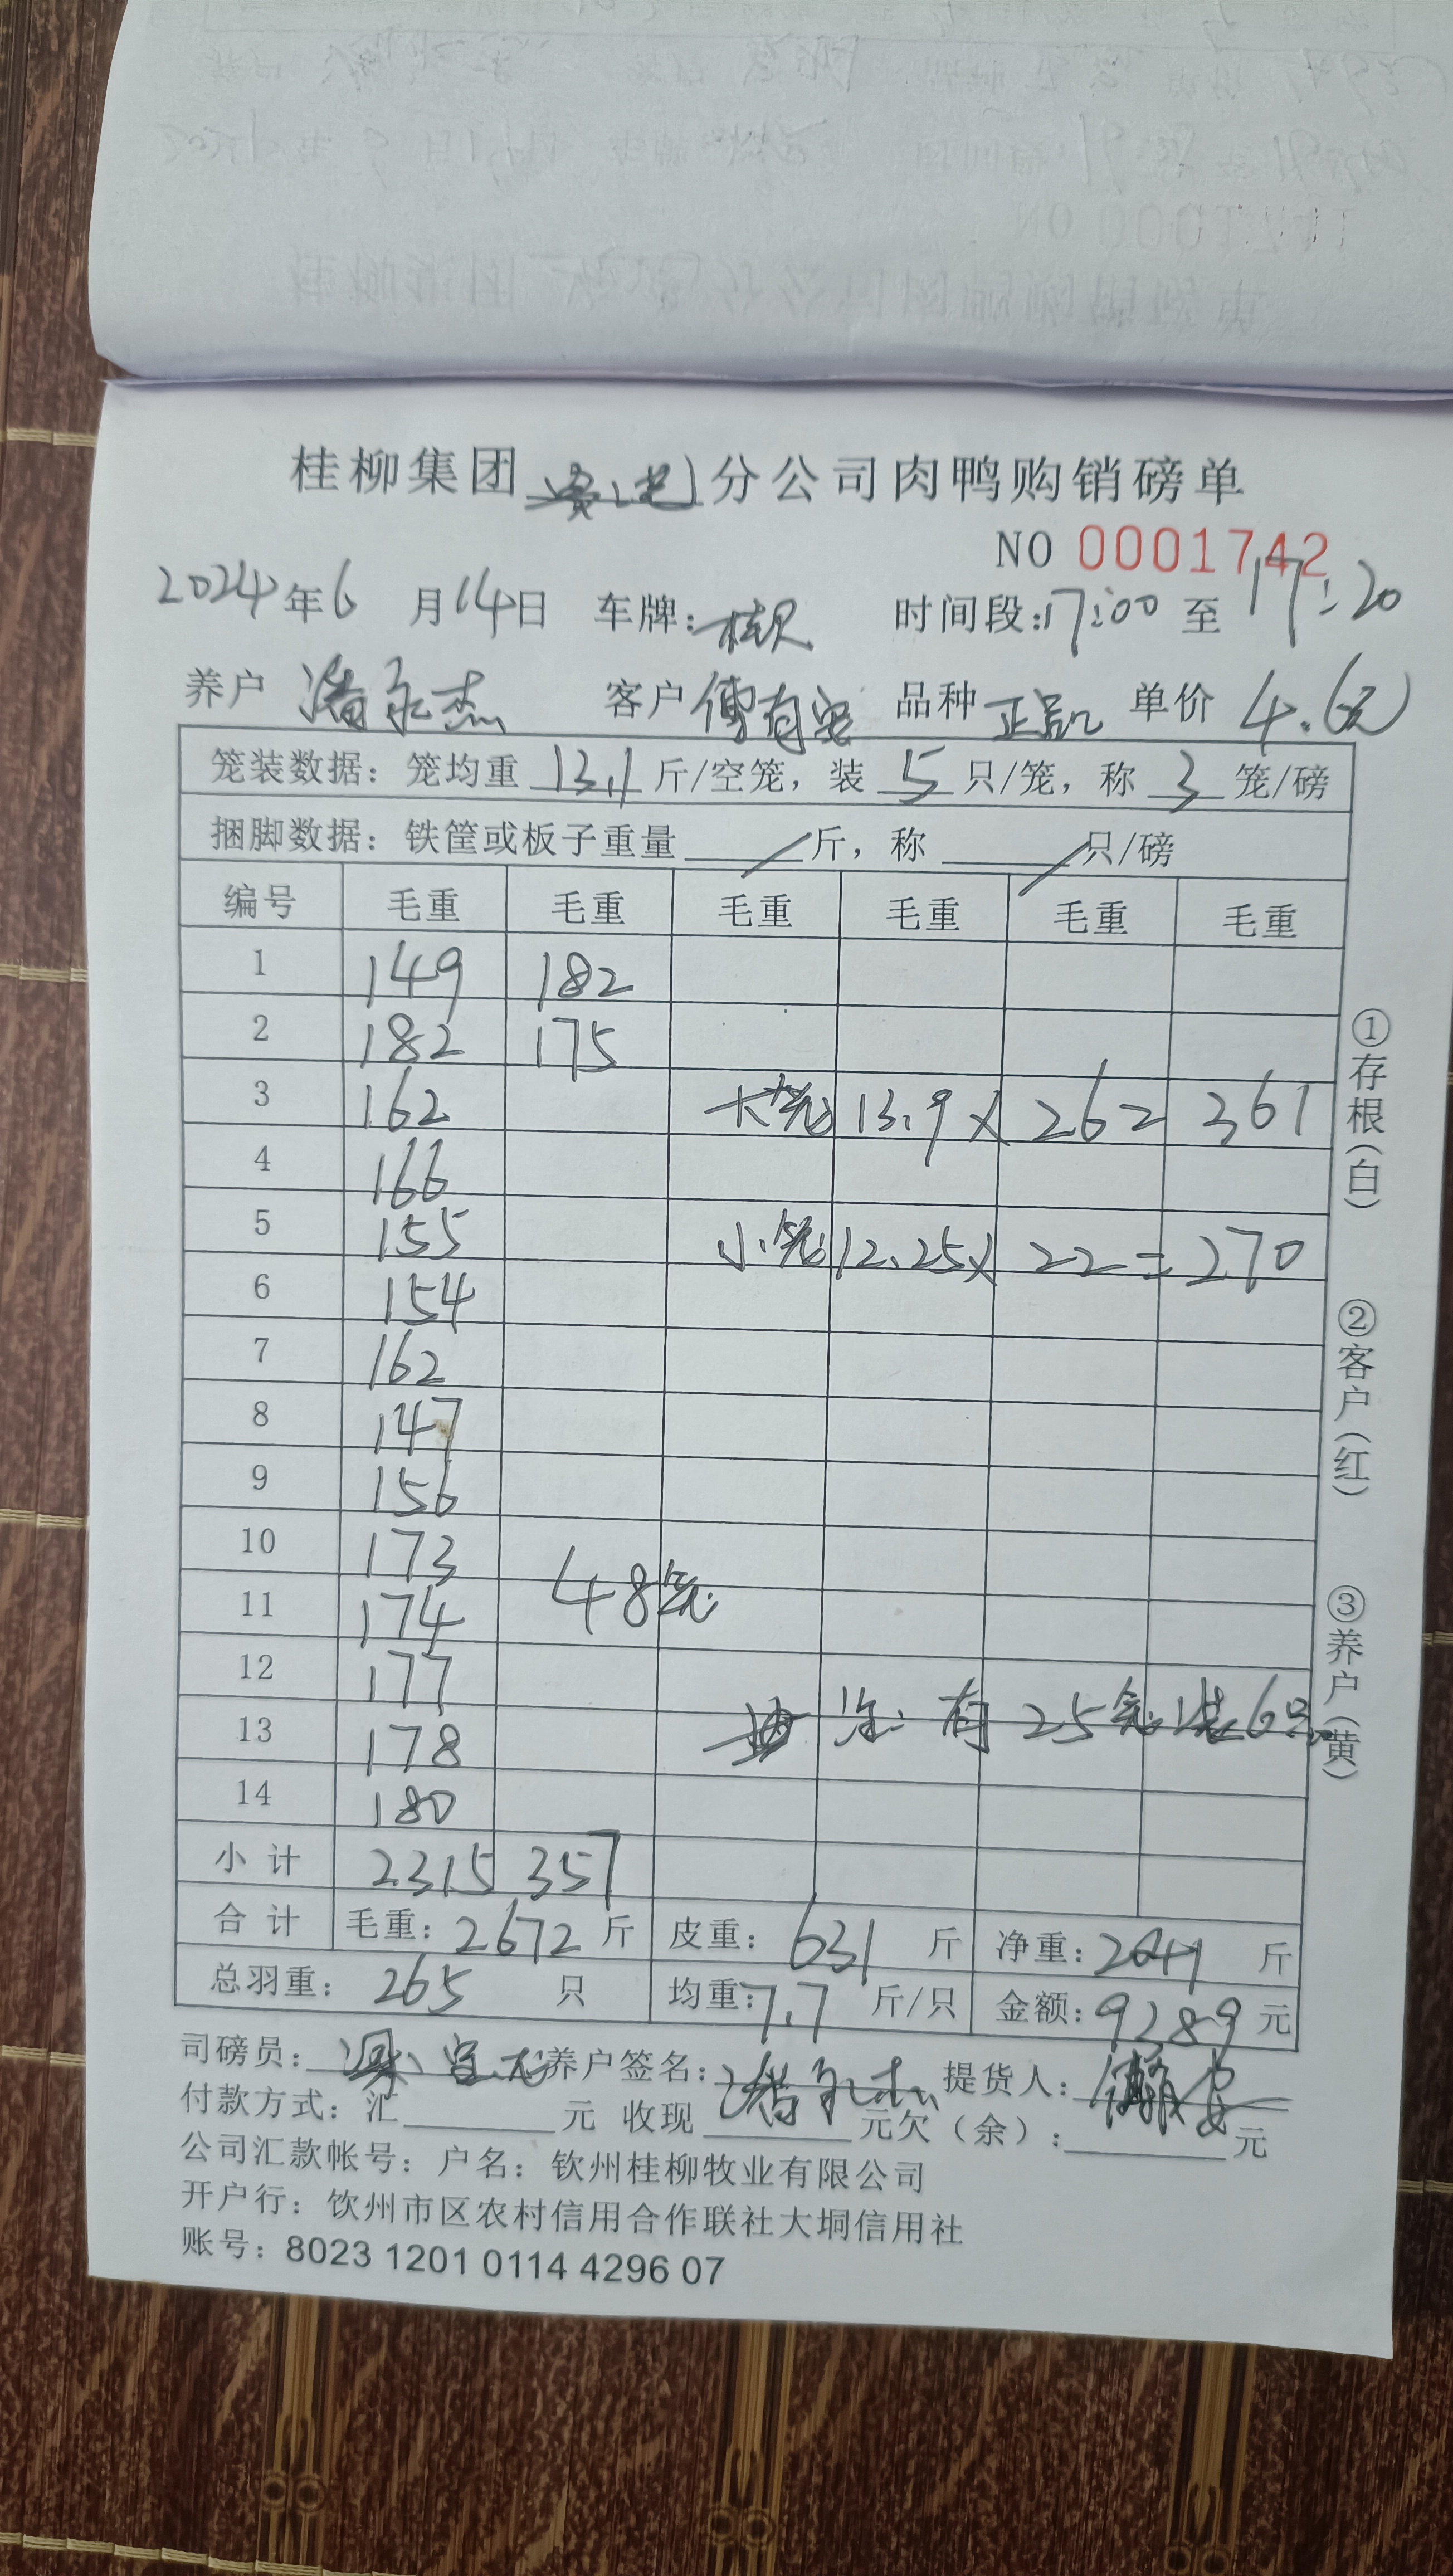 桂柳集团 分公司肉鸭购销磅单
NO 0001742
2024年6月14日 车牌: 时间段:17:00 至 17:20
养户 潘永杰 客户 傅有安 品种 正品 单价 4.
笼装数据：笼均重 13.1 斤/空笼，装 5 只/笼，称 3 笼/磅
捆脚数据：铁筐或板子重量 / 斤，称 / 只/磅
编号 毛重 毛重 毛重 毛重 毛重 毛重
1 149 182
2 182 175
3 162 大笼 13.9 X 262 361
4 166
5 155 小笼 12.25X 22 = 270
6 154
7 162
8 147
9 156
10 173
11 174 48笼
12 177
13 178 注: 有 25笼装6只
14 180
小计 2315 357
合计 毛重: 2672 斤 皮重: 631 斤 净重: 2041 斤
总羽重: 265 只 均重: 7.7 斤/只 金额: 9289 元
司磅员: 养户签名: 潘永杰 提货人:
付款方式：汇 元 收现 元欠（余）: 元
公司汇款帐号：户名：钦州桂柳牧业有限公司
开户行：饮州市区农村信用合作联社大垌信用社
账号：8023 1201 0114 4296 07
①存根(白)
②客户(红)
③养户(黄)